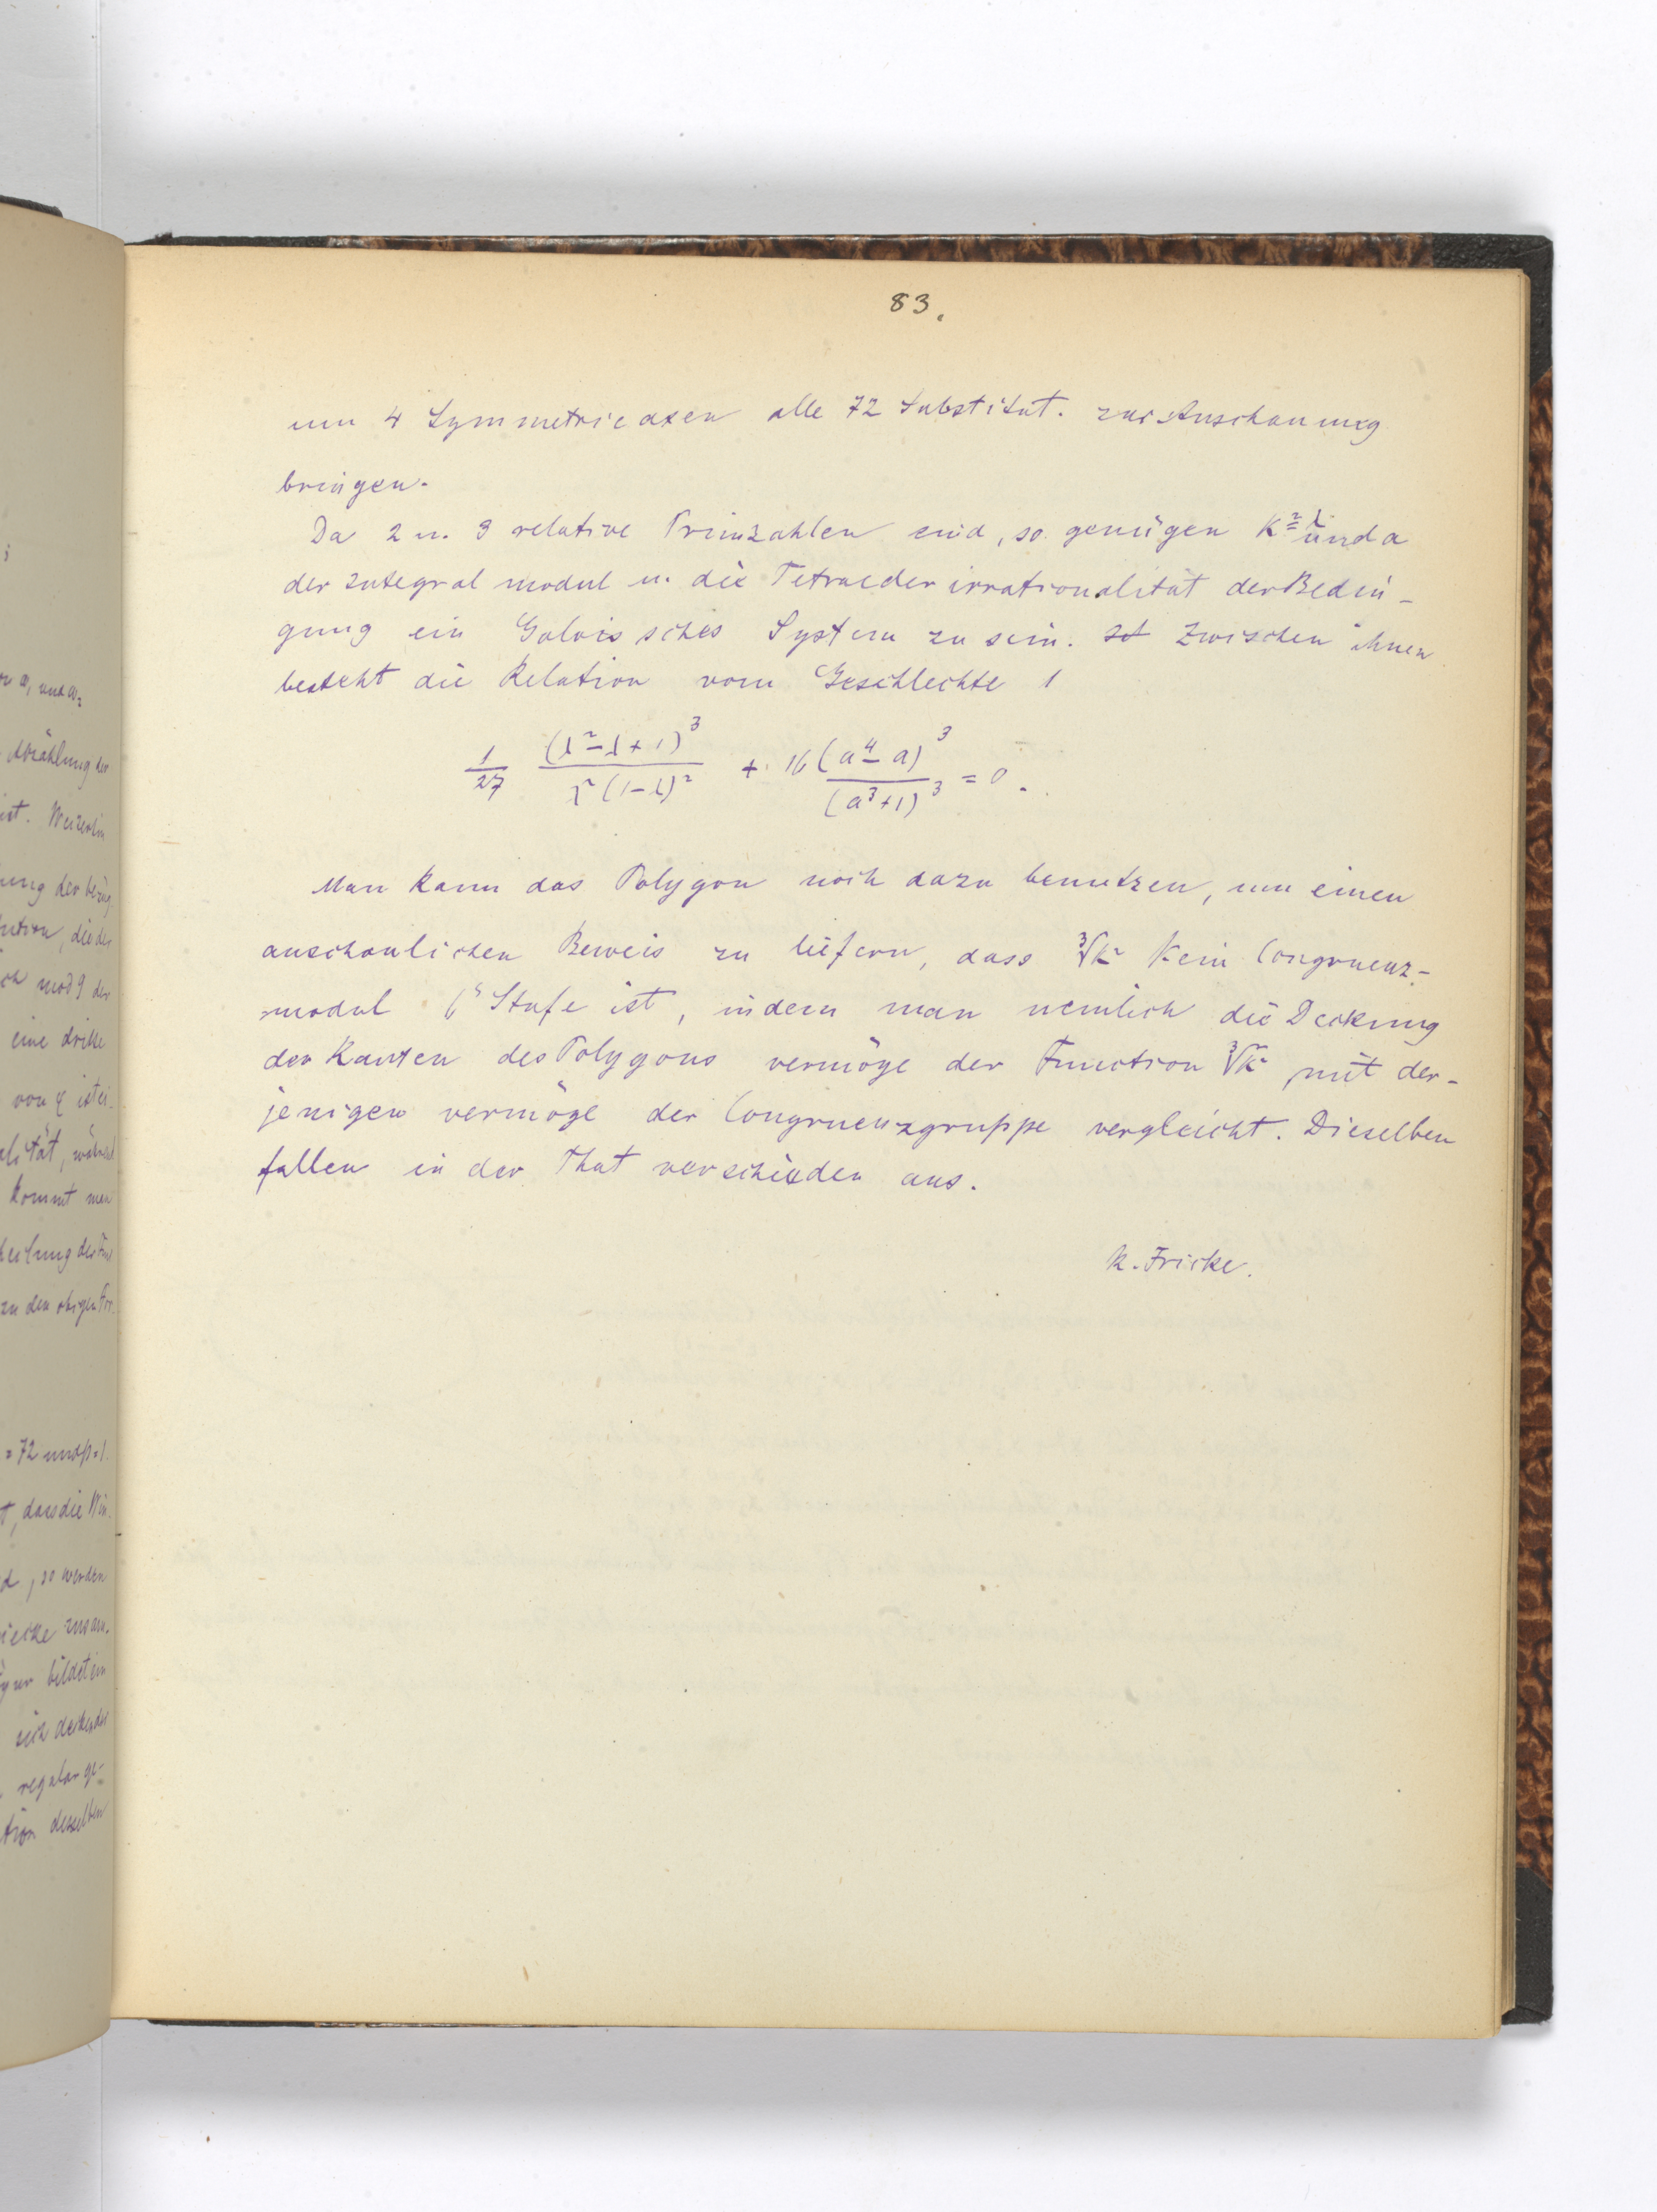 83.
um 4 Symmetrieaxen alle 72 Substitut. zur Anschauung
bringen.
Da 2 u. 3 relative Primzahlen sind, so genügen K²=λ und a
der Integralmodul u. die Tetraederirrationalität der Bedin-
gung ein Galois'sches System zu sein. Zwischen ihnen
besteht die Relation vom Geschlechte 1
1/27 (λ²-λ+1)³/λ²(1-λ)² + 16 (a⁴-a)³/(a³+1)³ = 0.
Man kann das Polygon noch dazu benutzen, um einen
anschaulichen Beweis zu liefern, dass ∛k² kein Congruenz-
modul 6ʳ Stufe ist, indem man nemlich die Deckung
der Kanten des Polygons vermöge der Function ∛k² mit der-
jenigen vermöge der Congruenzgruppe vergleicht. Dieselben
fallen in der That verschieden aus.
R. Fricke.
Abzählung der
ist. Weiterhin
mod 9 der
eine dritte
kommt man
= 72 und p=1.
, dass die Win-
, so werden
bildet ein
regulär ge-
desselben